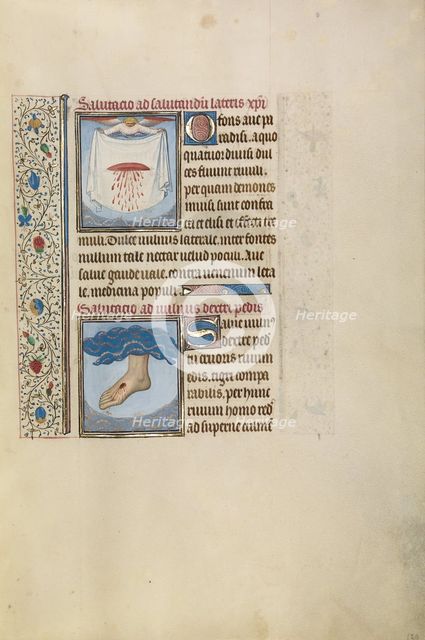 Salutacio ad salutandū lateris xpi
O fons aue pa
radisi. a quo
quatuor diuisi dul
ces fluunt riuuli.
per quam demones
inuisi. sunt contra
cti et elisi et
muli. Dulce uulnus laterale. inter fontes
nullum tale nectar uel ud poculi. Aue
salue gaude uale. contra uenenum leta
le. medicina populi.
Salutacio ad uulnus dextri pedis
Salue uuln
dextre ped
cruoris riuum
edis. tigri compa
rabilis. per hunc
riuum homo red
ad superne
Heritage
Heritage
Heritage
Heritage
Heritage